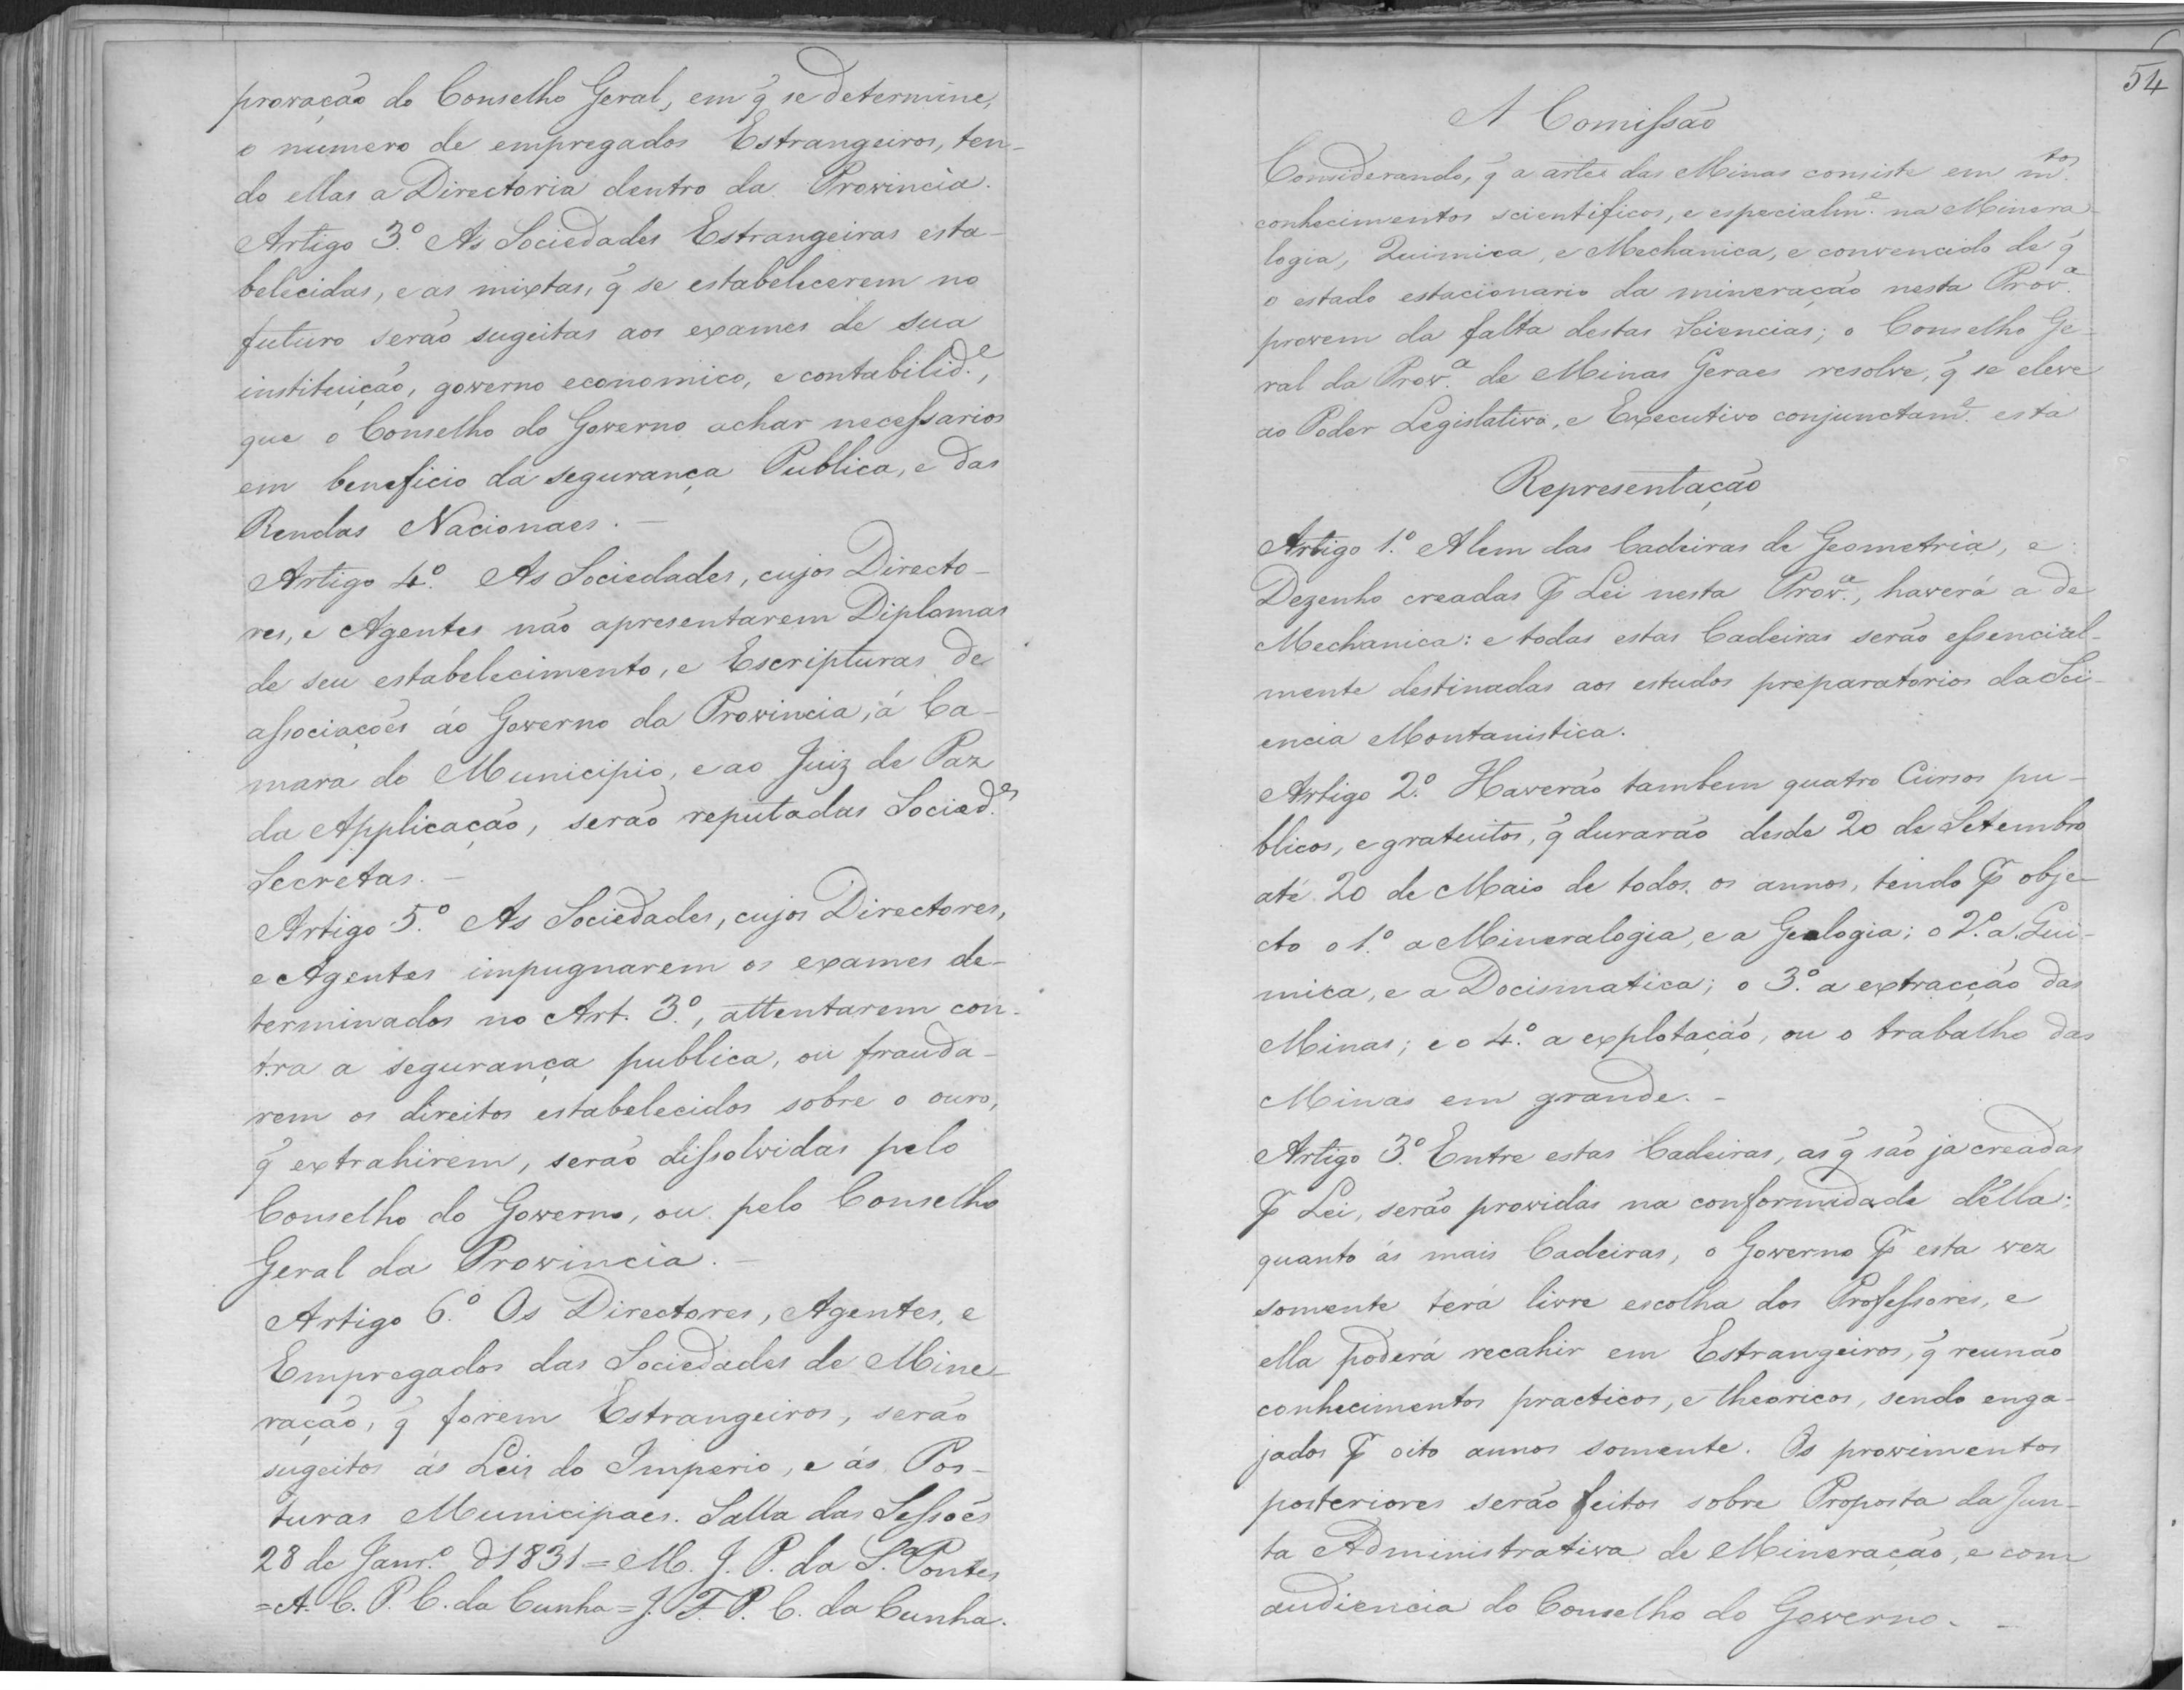 provação do Conselho Geral, em q̃ se determine,
o numero de empregados Estrangeiros, ten-
do ellas a Directoria dentro da Provincia.
Artigo 3.º As Sociedades Estrangeiras esta-
belecidas, e as mixtas, q̃ se estabelecerem no
futuro serão sugeitas aos exames de sua
instituição, governo economico, e contabilid.e,
que o Conselho do Governo achar necessarios
em beneficio da segurança Publica, e das
Rendas Nacionaes. —
Artigo 4.º As Sociedades, cujos Directo-
res, e Agentes não apresentarem Diplomas
de seu estabelecimento, e Escripturas de
associações áo Governo da Provincia, á Ca-
mara do Municipio, e ao Juiz de Paz
da Applicação, serão reputadas Socied.es
Secretas. —
Artigo 5.º As Sociedades, cujos Directores,
e Agentes impugnarem os exames de-
terminados no Art. 3.º, attentarem con-
tra a segurança publica, ou frauda-
rem os direitos estabelecidos sobre o ouro,
q̃ extrahirem, serão dissolvidas pelo
Conselho do Governo, ou pelo Conselho
Geral da Provincia. —
Artigo 6.º Os Directores, Agentes, e
Empregados das Sociedades de Mine-
ração, q̃ forem Estrangeiros, serão
sugeitos ás Leis do Imperio, e ás Pos-
turas Municipaes. Salla das Sessões
28 de Janr.º d 1831 = M. J. P. da S.a Pontes
= A. C. P. C. da Cunha = J. F. P. C. da Cunha.
54
A Comissão
Considerando, q̃ a artes das Minas consiste em m.tos
conhecimentos scientificos, e especialm.e na Minera-
logia, Quimica, e Mechanica, e convencido de q̃
o estado estacionario da mineração nesta Prov.a
provem da falta destas Sciencias; o Conselho Ge-
ral da Prov.a de Minas Geraes resolve, q̃ se eleve
ao Poder Legislativo, e Executivo conjunctam.e esta
Representação
Artigo 1.º Alem das Cadeiras de Geometria, e
Dezenho creadas p̃ Lei nesta Prov.a, haverá a de
Mechanica: e todas estas Cadeiras serão essencial-
mente destinadas aos estudos preparatorios da Sci-
encia Montanistica.
Artigo 2.º Haverão tambem quatro Cursos pu-
blicos, e gratuitos, q̃ durarão desde 20 de Setembro
até 20 de Maio de todos os annos, tendo p̃ obje-
cto o 1.º a Mineralogia, e a Geologia; o 2.º a Qui-
mica, e a Docismatica; o 3.º a extracção das
Minas; e o 4.º a explotação, ou o trabalho das
Minas em grande. -
Artigo 3.º Entre estas Cadeiras, as q̃ são ja creadas
p̃ Lei, serão providas na conformidade d'ella;
quanto ás mais Cadeiras, o Governo p̃ esta vez
somente terá livre escolha dos Professores, e
ella poderá recahir em Estrangeiros, q̃ reunão
conhecimentos practicos, e theoricos, sendo enga-
jados p̃ oito annos somente. Os provimentos
posteriores serão feitos sobre Proposta da Jun-
ta Administrativa de Mineração, e com
audiencia do Conselho do Governo. -